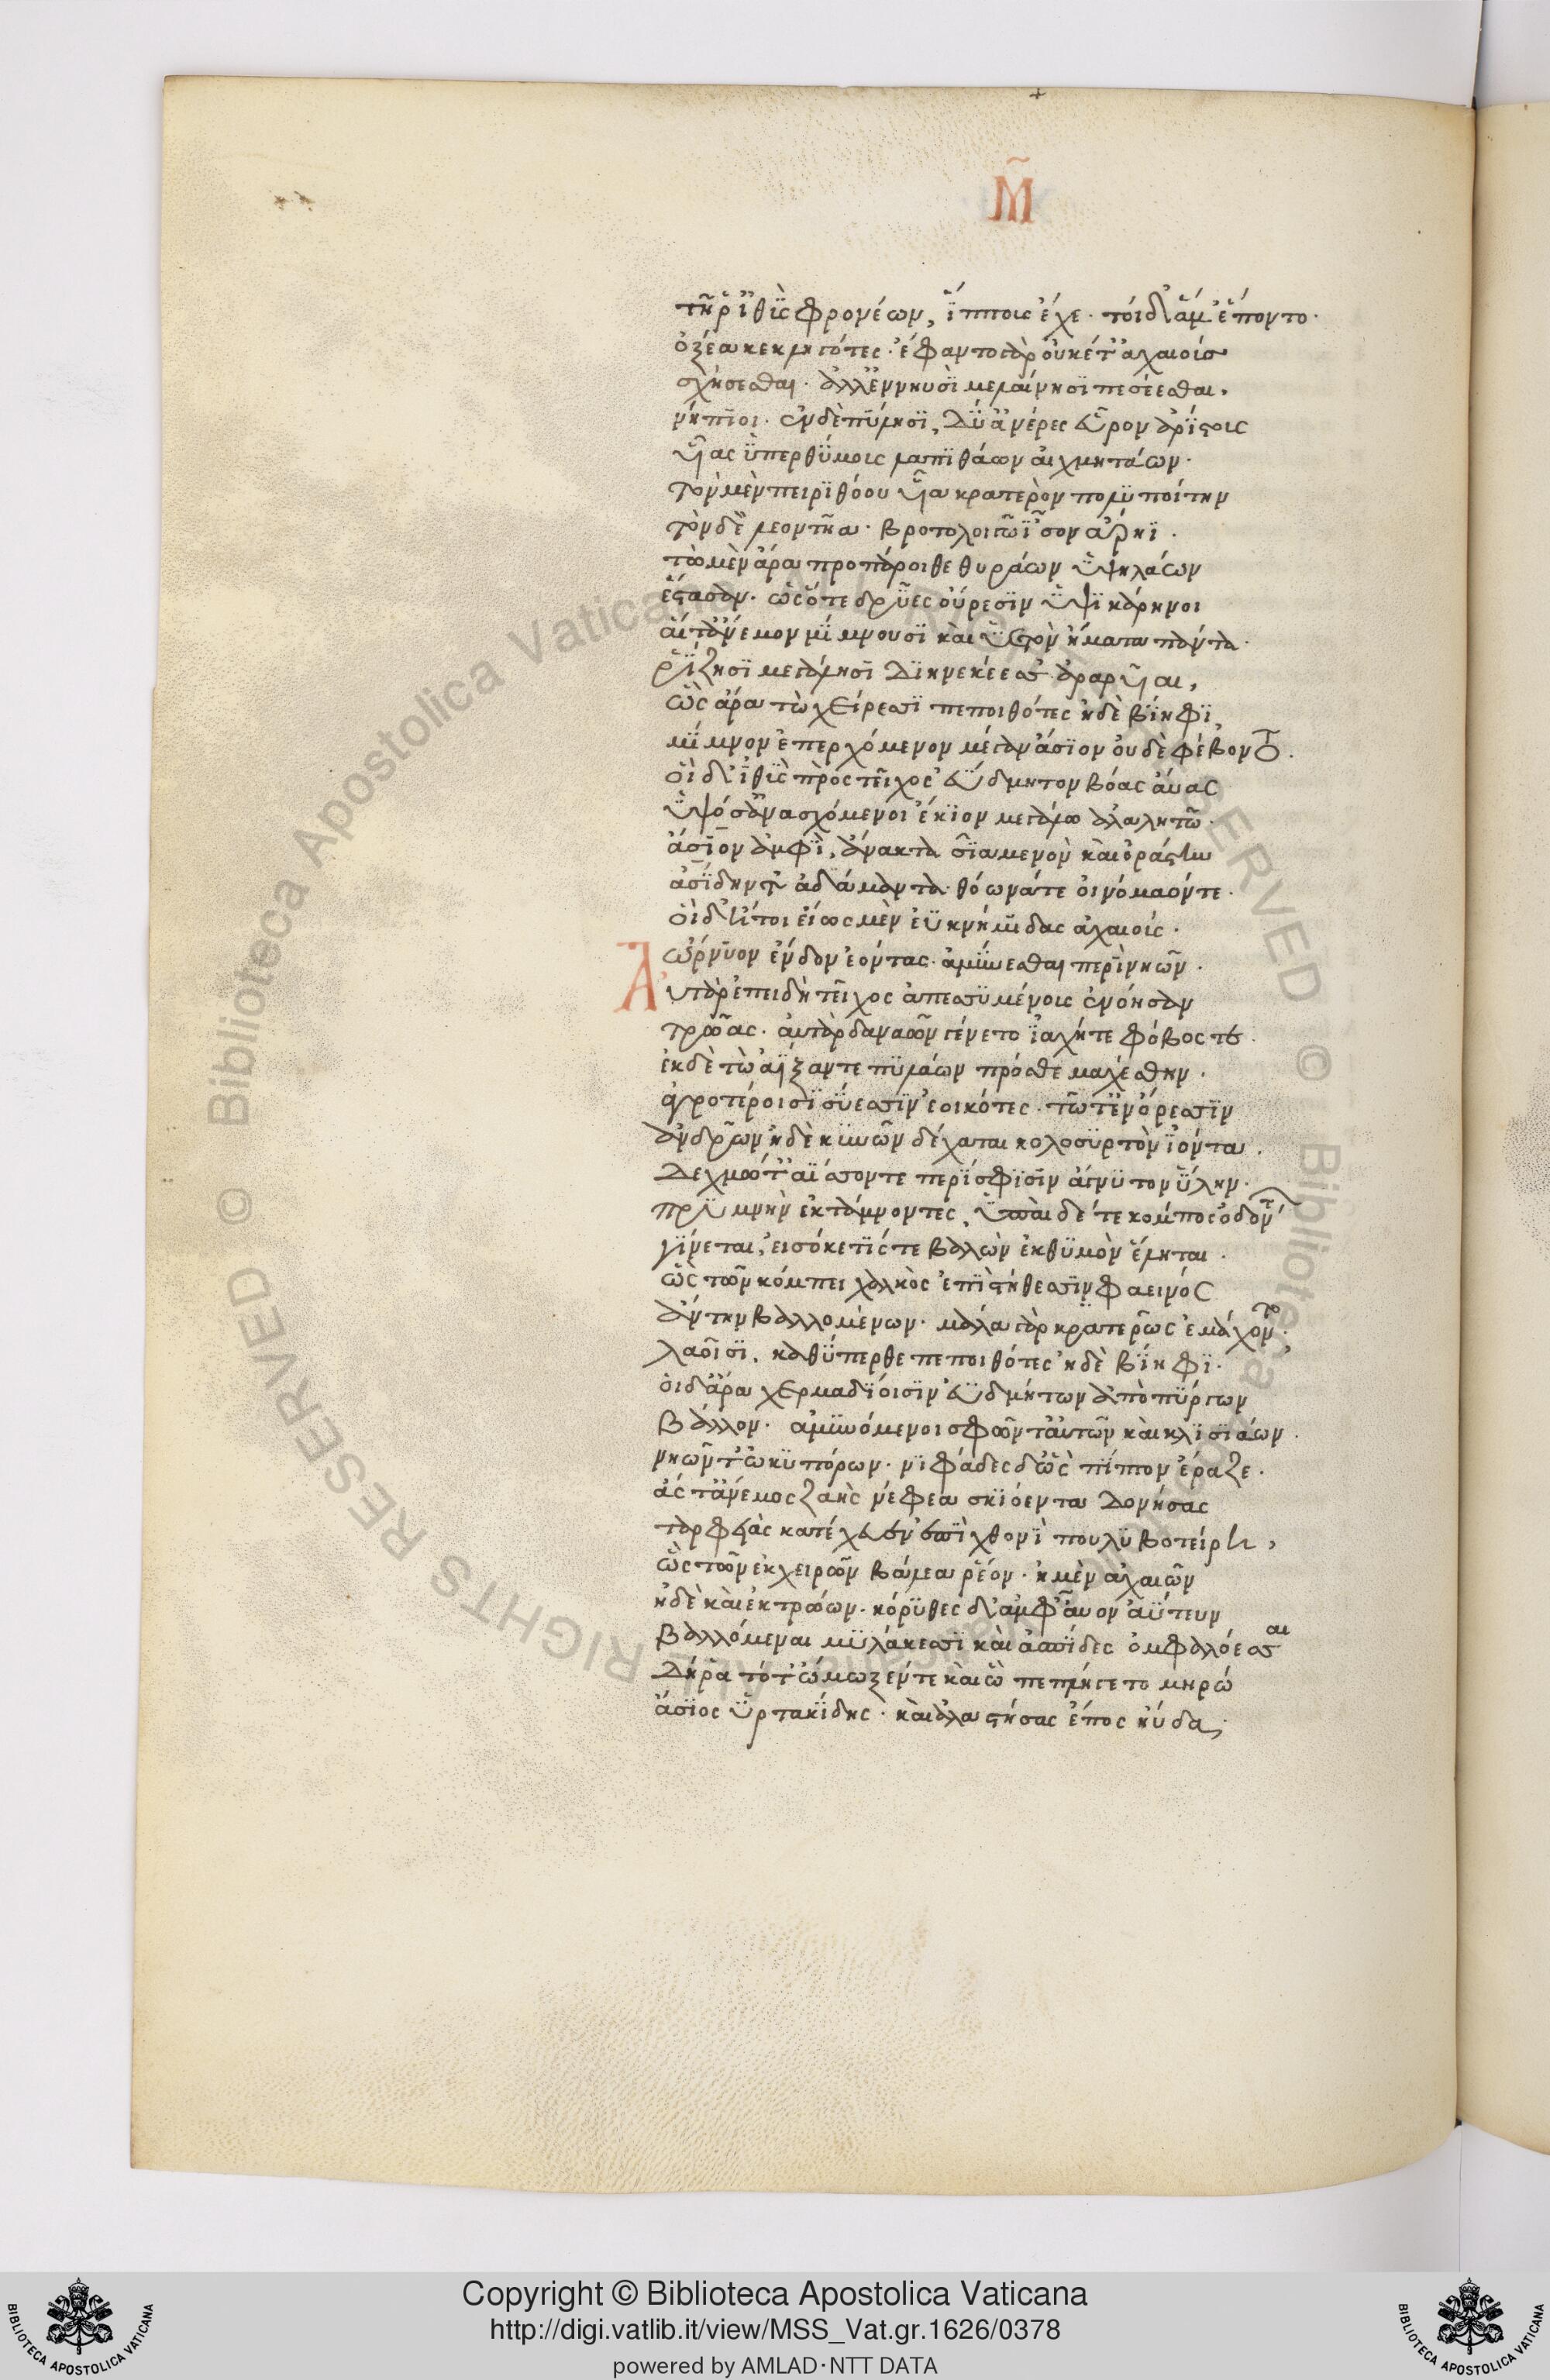 Μ̃
τῆ ῥ' ἰθὺς φρονέων, ἵππους ἔχε· τοὶ δ' ἅμ' ἕποντο·
ὀξέα κεκληγότες· ἔφαντο γὰρ οὐκέτ' ἀχαιοὺς
σχήσεσθαι· ἀλλ' ἐν νηυσὶ μελαίνησι πεσέεσθαι.
νήπιοι· ἐν δὲ πύλησι, δύ' ἀνέρες εὗρον ἀρίστους
υἷας ὑπερθύμους λαπιθάων αἰχμητάων·
τὸν μὲν πειριθόου υἷα κρατερὸν πολυποίτην
τὸν δὲ λεοντῆα· βροτολοιγῶ ἶσον ἄρηϊ·
τὼ μὲν ἄρα προπάροιθε θυράων ὑψηλάων
ἕστασαν· ὡς ὅτε δρύες οὔρεσιν ὑψικάρηνοι
αἵ τ' ἄνεμον μίμνουσι καὶ ὑετὸν ἤματα πάντα·
ῥίζησι μεγάλησι διηνεκέεσσ' ἀραρυῖαι,
ὣς ἄρα τὼ χείρεσσι πεποιθότες ἠδὲ βίηφι,
μίμνον ἐπερχόμενον μέγαν ἄσιον οὐδὲ φέβοντο.
οἳ δ' ἰθὺς πρὸς τεῖχος ἐΰδμητον βόας αὔας
ὑψόσ' ἀνασχόμενοι ἔκιον μεγάλω ἀλαλητῶ·
ἄσιον ἀμφὶ, ἄνακτα καὶ ἰαμενὸν καὶ ὀρέστην
ἀσιάδην τ' ἀδάμαντα θόωνά τε οἰνόμαόν τε.
οἳ δ' ἤτοι εἵως μὲν ἐϋκνήμιδας ἀχαιούς·
ὤρνυον ἔνδον ἐόντας· ἀμύνεσθαι περὶ νηῶν·
Αὐτὰρ ἐπειδὴ τεῖχος ἀπεσσυμένους ἐνόησαν
τρῶας· ἀυτὰρ δαναῶν γένετο ἰαχή τε φόβος τε·
ἐκ δὲ τὼ ἀίξαντε πυλάων πρόσθε μαχέσθην.
ἀγροτέροισι σύεσσιν ἐοικότες· τώ τ' ἐν ὄρεσσιν
ἀνδρῶν ἠδὲ κυνῶν δέχαται κολοσυρτὸν ἰόντα.
δοχμώ τ' ἀΐσσοντε περὶ σφίσιν ἄγνυτον ὕλην·
πρυμνὴν ἐκτάμνοντες, ὑπαὶ δέ τε κόμπος ὀδόντων
γίνεται, εἰσόκε τίς τε βαλὼν ἐκ θυμὸν ἕληται.
ὣς τῶν κόμπει χαλκὸς ἐπὶ στήθεσσιν φαεινὸς
ἄντην βαλλομένων· μάλα γὰρ κρατερῶς ἐμάχοντο·
λαοῖσι, καθύπερθε πεποιθότες ἠδὲ βίηφι·
οἱ δ' ἄρα χερμαδίοισιν ἐϋδμήτων ἀπὸ πύργων
βάλλον· ἀμυνόμενοι σφῶν τ' αὐτῶν καὶ κλισιάων.
νηῶν τ' ὠκυπόρων· νιφάδες δ' ὣς πίπτον ἔραζε·
ἅς τ' ἄνεμος ζαὴς νέφεα σκιόεντα δονήσας
ταρφειὰς κατέχευεν ἐπὶ χθονὶ πουλυβοτείρη,
ὣς τῶν ἐκ χειρῶν βέλεα ῥέον· ἠμὲν ἀχαιῶν
ἠδὲ καὶ ἐκ τρώων· κόρυθες δ' ἀμφ' αὖον ἀΰτευν
βαλλόμεναι μυλάκεσσι καὶ ἀσπίδες ὀμφαλόεσσαι
δή ῥα τότ' ᾤμωξέν τε καὶ ὣ πεπλήγετο μηρὼ
ἄσιος ὑρτακίδης· καὶ ἀλαστήσας ἔπος ηὔδα;
Copyright © Biblioteca Apostolica Vaticana
http://digi.vatlib.it/view/MSS_Vat.gr.1626/0378
powered by AMLAD·NTT DATA